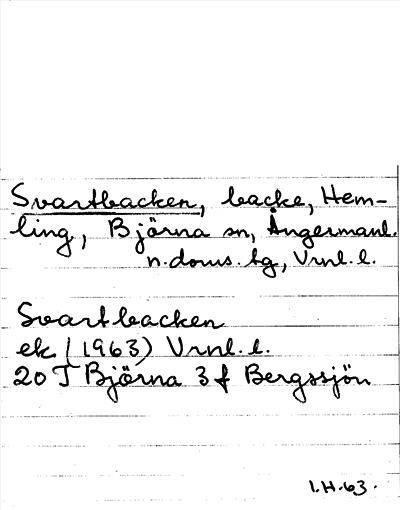 Svartbacken, backe, Hem-
ling, Björna sn, Ångermanl.
n. doms. tg, Vrnl. l.
Svartbacken
ek. (1963) Vrnl. l.
20 J Björna 3 f Bergssjön
I.H.63.